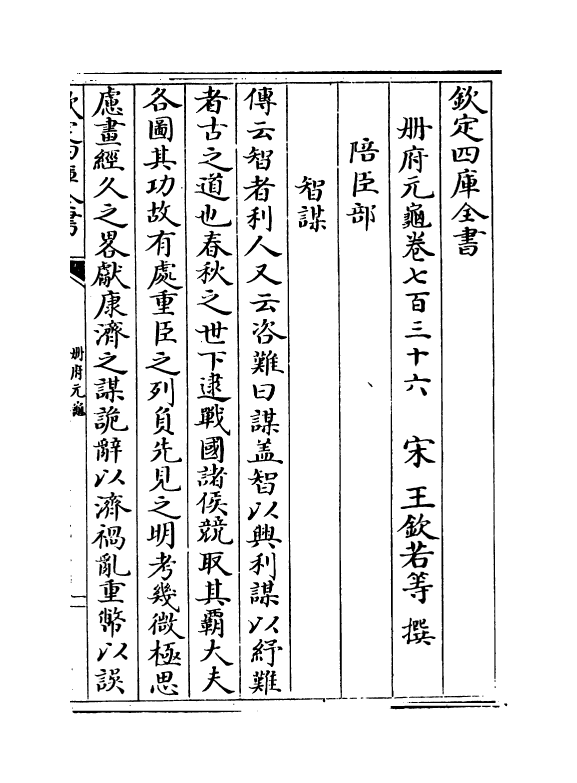 欽定四庫全書
冊府元龜卷七百三十六　宋 王欽若等 撰
陪臣部
智謀
傳云智者利人又云咨難曰謀盖智以興利謀以紓難
者古之道也春秋之世下逮戰國諸侯競取其霸大夫
各圖其功故有處重臣之列負先見之明考幾微極思
慮畫經久之畧獻康濟之謀詭辭以濟禍亂重幣以誤
欽定四庫全書
冊府元龜